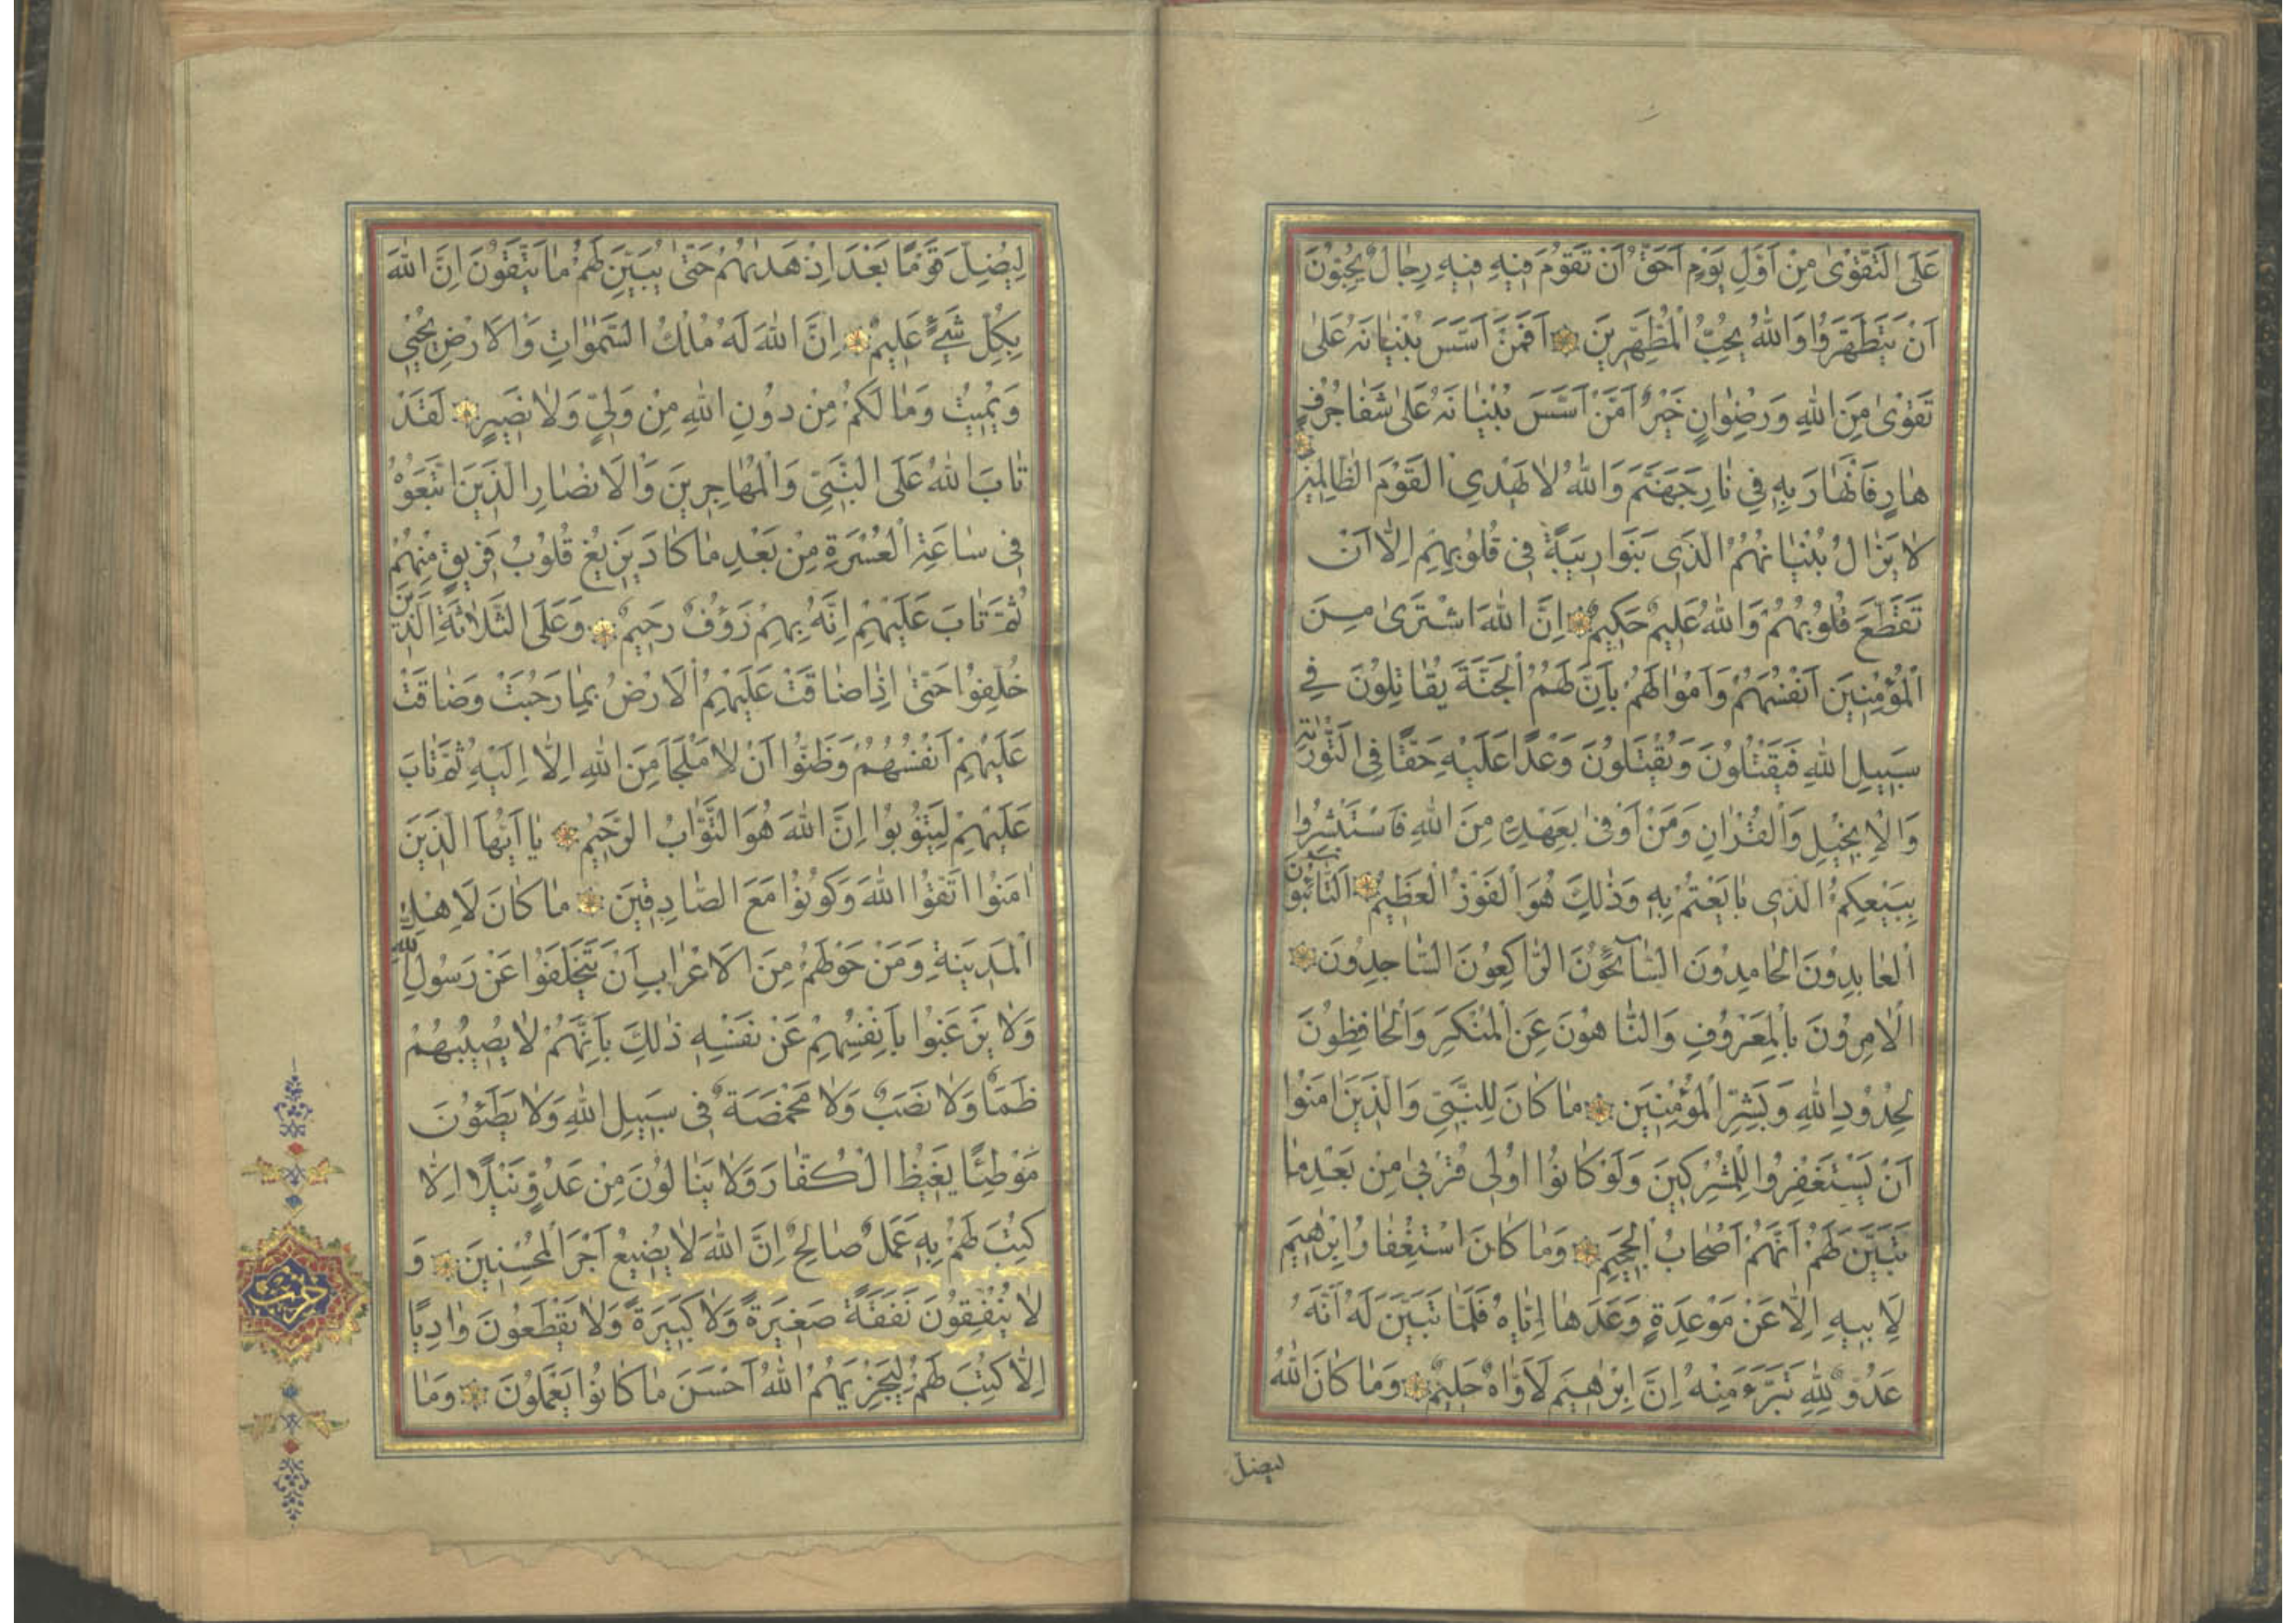 عَلَى التَّقْوٰى مِنْ اَوَّلِ يَوْمٍ اَحَقُّ اَنْ تَقُومَ فِيهِ فِيهِ رِجَالٌ يُحِبُّونَ
اَنْ يَتَطَهَّرُوا وَاللّٰهُ يُحِبُّ الْمُطَّهِّرِينَ اَفَمَنْ اَسَّسَ بُنْيَانَهُ عَلٰى
تَقْوٰى مِنَ اللّٰهِ وَرِضْوَانٍ خَيْرٌ اَمَّنْ اَسَّسَ بُنْيَانَهُ عَلٰى شَفَا جُرُفٍ
هَارٍ فَانْهَارَ بِهِ فِي نَارِ جَهَنَّمَ وَاللّٰهُ لَا يَهْدِي الْقَوْمَ الظَّالِمِينَ
لَا يَزَالُ بُنْيَانُهُمُ الَّذِي بَنَوْا رِيبَةً فِي قُلُوبِهِمْ اِلَّا اَنْ
تَقَطَّعَ قُلُوبُهُمْ وَاللّٰهُ عَلِيمٌ حَكِيمٌ اِنَّ اللّٰهَ اشْتَرٰى مِنَ
الْمُؤْمِنِينَ اَنْفُسَهُمْ وَاَمْوَالَهُمْ بِاَنَّ لَهُمُ الْجَنَّةَ يُقَاتِلُونَ فِي
سَبِيلِ اللّٰهِ فَيَقْتُلُونَ وَيُقْتَلُونَ وَعْدًا عَلَيْهِ حَقًّا فِي التَّوْرٰيةِ
وَالْاِنْجِيلِ وَالْقُرْاٰنِ وَمَنْ اَوْفٰى بِعَهْدِهِ مِنَ اللّٰهِ فَاسْتَبْشِرُوا
بِبَيْعِكُمُ الَّذِي بَايَعْتُمْ بِهِ وَذٰلِكَ هُوَ الْفَوْزُ الْعَظِيمُ اَلتَّائِبُونَ
الْعَابِدُونَ الْحَامِدُونَ السَّائِحُونَ الرَّاكِعُونَ السَّاجِدُونَ
الْاٰمِرُونَ بِالْمَعْرُوفِ وَالنَّاهُونَ عَنِ الْمُنْكَرِ وَالْحَافِظُونَ
لِحُدُودِ اللّٰهِ وَبَشِّرِ الْمُؤْمِنِينَ مَا كَانَ لِلنَّبِيِّ وَالَّذِينَ اٰمَنُوا
اَنْ يَسْتَغْفِرُوا لِلْمُشْرِكِينَ وَلَوْ كَانُوا اُولِي قُرْبٰى مِنْ بَعْدِ مَا
تَبَيَّنَ لَهُمْ اَنَّهُمْ اَصْحَابُ الْجَحِيمِ وَمَا كَانَ اسْتِغْفَارُ اِبْرٰهِيمَ
لِاَبِيهِ اِلَّا عَنْ مَوْعِدَةٍ وَعَدَهَا اِيَّاهُ فَلَمَّا تَبَيَّنَ لَهُ اَنَّهُ
عَدُوٌّ لِلّٰهِ تَبَرَّءَ مِنْهُ اِنَّ اِبْرٰهِيمَ لَاَوَّاهٌ حَلِيمٌ وَمَا كَانَ اللّٰهُ
ليضل
لِيُضِلَّ قَوْمًا بَعْدَ اِذْ هَدٰيهُمْ حَتّٰى يُبَيِّنَ لَهُمْ مَا يَتَّقُونَ اِنَّ اللّٰهَ
بِكُلِّ شَيْءٍ عَلِيمٌ اِنَّ اللّٰهَ لَهُ مُلْكُ السَّمٰوَاتِ وَالْاَرْضِ يُحْيِي
وَيُمِيتُ وَمَا لَكُمْ مِنْ دُونِ اللّٰهِ مِنْ وَلِيٍّ وَلَا نَصِيرٍ لَقَدْ
تَابَ اللّٰهُ عَلَى النَّبِيِّ وَالْمُهَاجِرِينَ وَالْاَنْصَارِ الَّذِينَ اتَّبَعُوهُ
فِي سَاعَةِ الْعُسْرَةِ مِنْ بَعْدِ مَا كَادَ يَزِيغُ قُلُوبُ فَرِيقٍ مِنْهُمْ
ثُمَّ تَابَ عَلَيْهِمْ اِنَّهُ بِهِمْ رَؤُفٌ رَحِيمٌ وَعَلَى الثَّلَاثَةِ الَّذِينَ
خُلِّفُوا حَتّٰى اِذَا ضَاقَتْ عَلَيْهِمُ الْاَرْضُ بِمَا رَحُبَتْ وَضَاقَتْ
عَلَيْهِمْ اَنْفُسُهُمْ وَظَنُّوا اَنْ لَا مَلْجَاَ مِنَ اللّٰهِ اِلَّا اِلَيْهِ ثُمَّ تَابَ
عَلَيْهِمْ لِيَتُوبُوا اِنَّ اللّٰهَ هُوَ التَّوَّابُ الرَّحِيمُ يَا اَيُّهَا الَّذِينَ
اٰمَنُوا اتَّقُوا اللّٰهَ وَكُونُوا مَعَ الصَّادِقِينَ مَا كَانَ لِاَهْلِ
الْمَدِينَةِ وَمَنْ حَوْلَهُمْ مِنَ الْاَعْرَابِ اَنْ يَتَخَلَّفُوا عَنْ رَسُولِ اللّٰهِ
وَلَا يَرْغَبُوا بِاَنْفُسِهِمْ عَنْ نَفْسِهِ ذٰلِكَ بِاَنَّهُمْ لَا يُصِيبُهُمْ
ظَمَاٌ وَلَا نَصَبٌ وَلَا مَخْمَصَةٌ فِي سَبِيلِ اللّٰهِ وَلَا يَطَؤُنَ
مَوْطِئًا يَغِيظُ الْكُفَّارَ وَلَا يَنَالُونَ مِنْ عَدُوٍّ نَيْلًا اِلَّا
كُتِبَ لَهُمْ بِهِ عَمَلٌ صَالِحٌ اِنَّ اللّٰهَ لَا يُضِيعُ اَجْرَ الْمُحْسِنِينَ وَ
لَا يُنْفِقُونَ نَفَقَةً صَغِيرَةً وَلَا كَبِيرَةً وَلَا يَقْطَعُونَ وَادِيًا
اِلَّا كُتِبَ لَهُمْ لِيَجْزِيَهُمُ اللّٰهُ اَحْسَنَ مَا كَانُوا يَعْمَلُونَ وَمَا
حزب